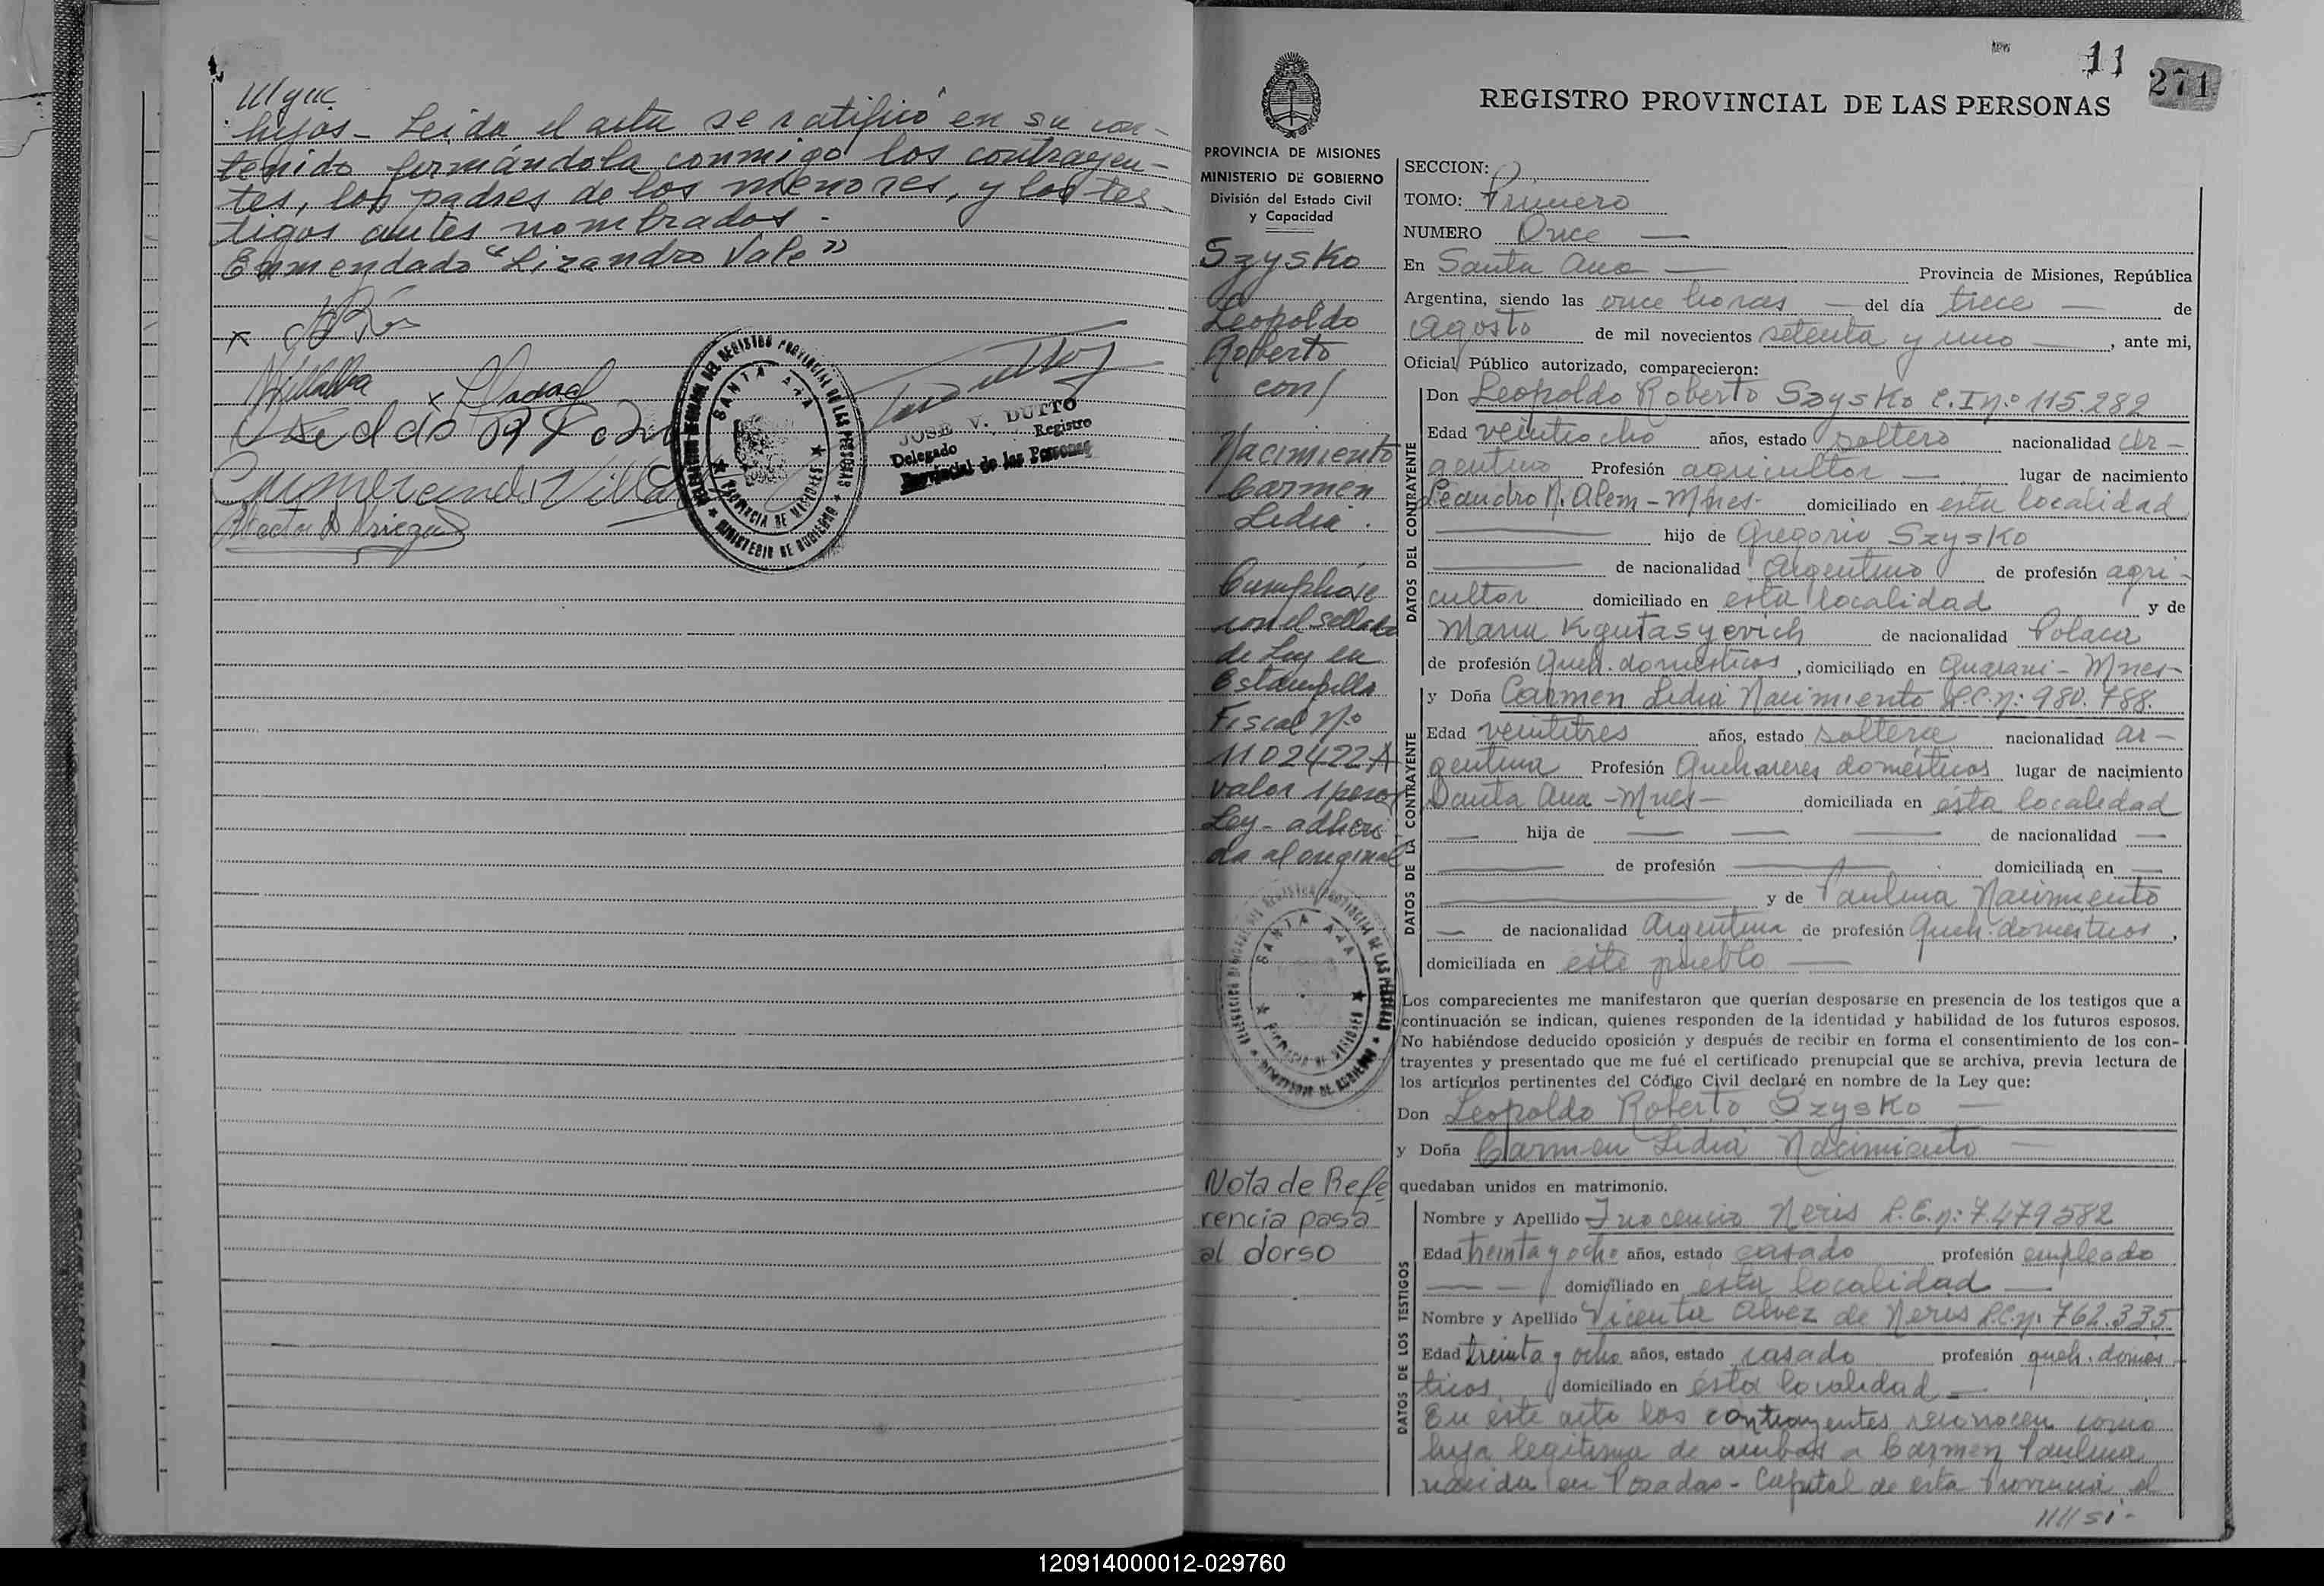 hijos - Leida el acta se ratificó en su con-
tenido firmándola conmigo los contrayen-
tes, los padres de los menores, y los tes-
tigos antes nombrados -
Enmendado "Lizandro Vale"
Villalba
JOSE V. DUTTO
Delegado Registro
Provincial de las Personas
SANTA ANA
PROVINCIA DE MISIONES
MINISTERIO DE GOBIERNO
11
271
REGISTRO PROVINCIAL DE LAS PERSONAS
PROVINCIA DE MISIONES
MINISTERIO DE GOBIERNO
División del Estado Civil
y Capacidad
Szysko
Leopoldo
Roberto
con/
Nacimiento
Carmen
Lidia.
Cumpliose
con el sellado
de Ley en
Estampilla
Fiscal Nº
1102422A
valor 1 peso
Ley - adheri
da al original
SANTA ANA
PROVINCIA DE MISIONES
MINISTERIO DE GOBIERNO
Nota de Refe
rencia pasa
al dorso
SECCION:
TOMO: Primero
NUMERO Once —
En Santa Ana — Provincia de Misiones, República
Argentina, siendo las once horas — del día trece — de
Agosto de mil novecientos setenta y uno —, ante mi,
Oficial Público autorizado, comparecieron:
DATOS DEL CONTRAYENTE
Don Leopoldo Roberto Szysko C.I nº 115.282
Edad veintiocho años, estado soltero nacionalidad Ar-
gentino Profesión agricultor — lugar de nacimiento
Leandro N. Alem - Mnes - domiciliado en esta localidad
— hijo de Gregorio Szysko
— de nacionalidad Argentino de profesión agri-
cultor domiciliado en esta localidad y de
Maria de nacionalidad Polaca
de profesión Queh. domésticos, domiciliado en Guarani - Mnes -
DATOS DE LA CONTRAYENTE
y Doña Carmen Lidia Nacimiento L.C.nº 980.788.
Edad veintitres años, estado soltera nacionalidad ar-
gentina Profesión Quehaceres domésticos lugar de nacimiento
Santa Ana - Mnes - domiciliada en ésta localidad
— hija de — — — de nacionalidad —
— de profesión — domiciliada en —
— y de Paulina Nacimiento
— de nacionalidad Argentina de profesión Queh. domesticos,
domiciliada en este pueblo —
Los comparecientes me manifestaron que querían desposarse en presencia de los testigos que a
continuación se indican, quienes responden de la identidad y habilidad de los futuros esposos.
No habiéndose deducido oposición y después de recibir en forma el consentimiento de los con-
trayentes y presentado que me fué el certificado prenupcial que se archiva, previa lectura de
los artículos pertinentes del Código Civil declaré en nombre de la Ley que:
Don Leopoldo Roberto Szysko —
y Doña Carmen Lidia Nacimiento —
quedaban unidos en matrimonio.
DATOS DE LOS TESTIGOS
Nombre y Apellido Inocencio Neris L.E.nº 7.479582
Edad treinta y ocho años, estado casado profesión empleado
— — domiciliado en esta localidad —
Nombre y Apellido Vicenta Alvez de Neris L.C.nº 762.335
Edad treinta y ocho años, estado casado profesión queh. domes-
ticos domiciliado en ésta localidad —
En éste acto los contrayentes reconocen como
hija legitima de ambos a Carmen Paulina
nacida en Posadas - Capital de esta Provincia el
120914000012-029760